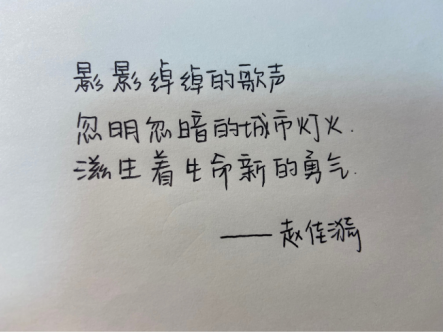 影影绰绰的歌声
忽明忽暗的城市灯火.
滋生着生命新的勇气.
——赵佳漪